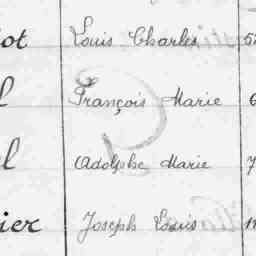 ot Louis Charles 5
l François Marie 6
l Adolphe Marie 7
ier Joseph Louis